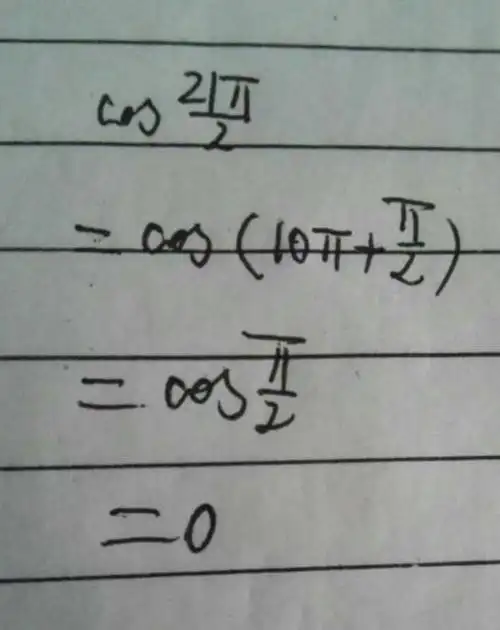 cos 21π/2
= cos (10π + π/2)
= cos π/2
= 0